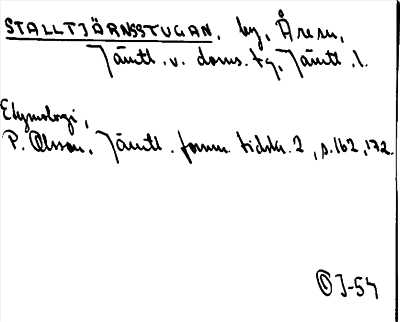 STALLTJÄRNSSTUGAN, by, Åren,
Jämtl. v. doms. tg, Jämtl. l.
Etymologi,
P. Olsson, Jämtl. fornm. tidskr. 2, s. 162, 172.
OJ-54